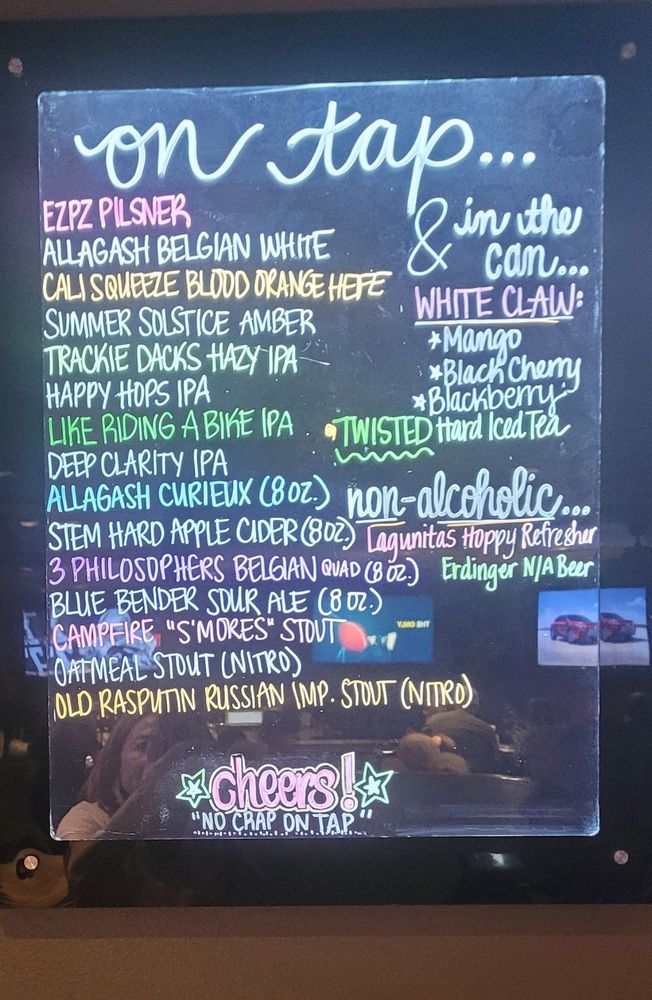 on tap...
EZPZ PILSNER
ALLAGASH BELGIAN WHITE
CALI SQUEEZE BLOOD ORANGE HEFE
SUMMER SOLSTICE AMBER
TRACKIE DACKS HAZY IPA
HAPPY HOPS IPA
LIKE RIDING A BIKE IPA
DEEP CLARITY IPA
ALLAGASH CURIEUX (8 OZ.)
STEM HARD APPLE CIDER (8OZ)
3 PHILOSOPHERS BELGIAN QUAD (8 OZ.)
BLUE BENDER SOUR ALE (8 OZ.)
CAMPFIRE "S'MORES" STOUT
OATMEAL STOUT (NITRO)
OLD RASPUTIN RUSSIAN IMP. STOUT (NITRO)
& in the
can...
WHITE CLAW:
*Mango
*Black Cherry
*Blackberry
TWISTED Hard Iced Tea
non-alcoholic...
Lagunitas Hoppy Refresher
Erdinger N/A Beer
cheers!
"NO CRAP ON TAP"